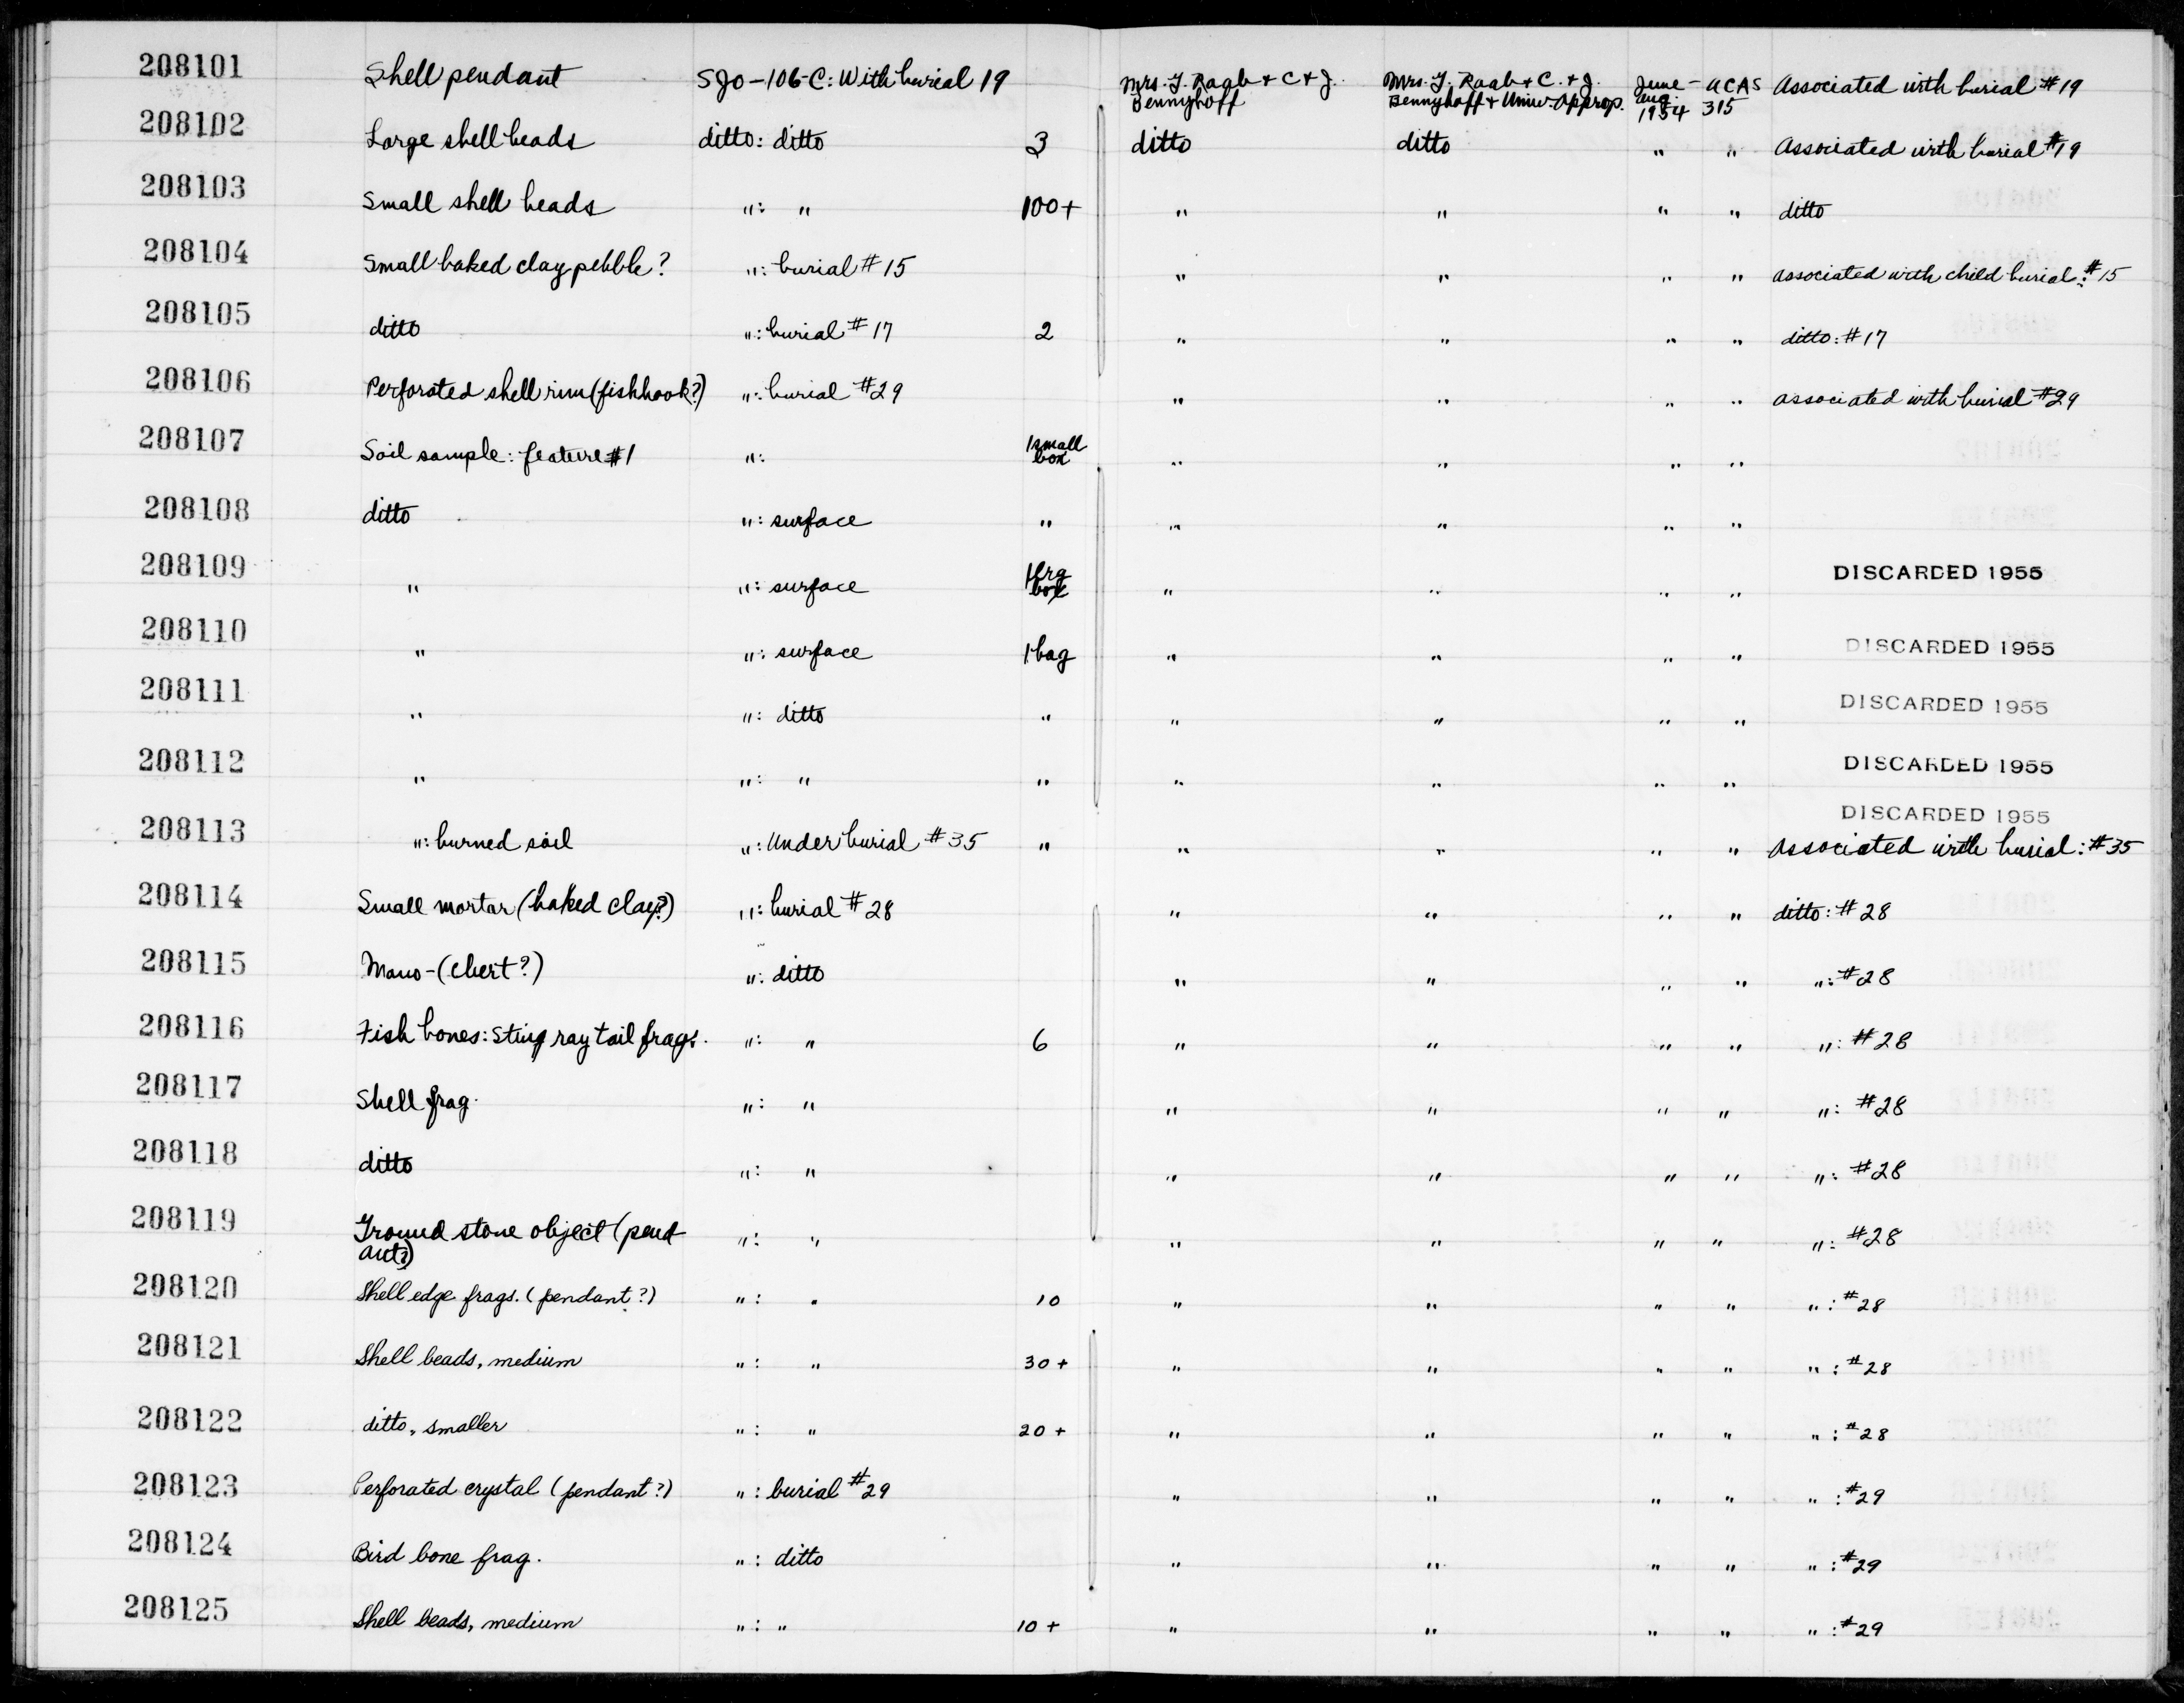 208101 Shell pendant SJO-106-C: With burial 19 Mrs. J. Raab + C + J. Bennyhoff Mrs. J. Raab + C. + J. Bennyhoff + Univ. Approp. June - Aug. 1954 UCAS 315 Associated with burial #19
208102 Large shell beads ditto: ditto 3 ditto ditto " " Associated with burial #19
208103 Small shell beads ": " 100+ " " " " ditto
208104 Small baked clay pebble? ": burial #15 " " " " associated with child burial: #15
208105 ditto ": burial #17 2 " " " " ditto: #17
208106 Perforated shell rim (fishhook?) ": burial #29 " " " " associated with burial #29
208107 Soil sample: feature #1 ": 1 small box " " " "
208108 ditto ": surface " " " " "
208109 " ": surface 1 lrg box " " " " DISCARDED 1955
208110 " ": surface 1 bag " " " " DISCARDED 1955
208111 " ": ditto " " " " " DISCARDED 1955
208112 " ": " " " " " " DISCARDED 1955
DISCARDED 1955
208113 ": burned soil ": Under burial #35 " " " " " Associated with burial: #35
208114 Small mortar (baked clay?) ": burial #28 " " " " ditto: #28
208115 Mano-(chert?) ": ditto " " " " ": #28
208116 Fish bones: Sting ray tail frags. ": " 6 " " " " ": #28
208117 Shell frag. ": " " " " " ": #28
208118 ditto ": " " " " " ": #28
208119 Ground stone object (pendant?) ": " " " " " ": #28
208120 Shell edge frags. (pendant?) ": " 10 " " " " ": #28
208121 Shell beads, medium ": " 30+ " " " " ": #28
208122 ditto, smaller ": " 20+ " " " " ": #28
208123 Perforated crystal (pendant?) ": burial #29 " " " " ": #29
208124 Bird bone frag. ": ditto " " " " ": #29
208125 Shell beads, medium ": " 10+ " " " " ": #29